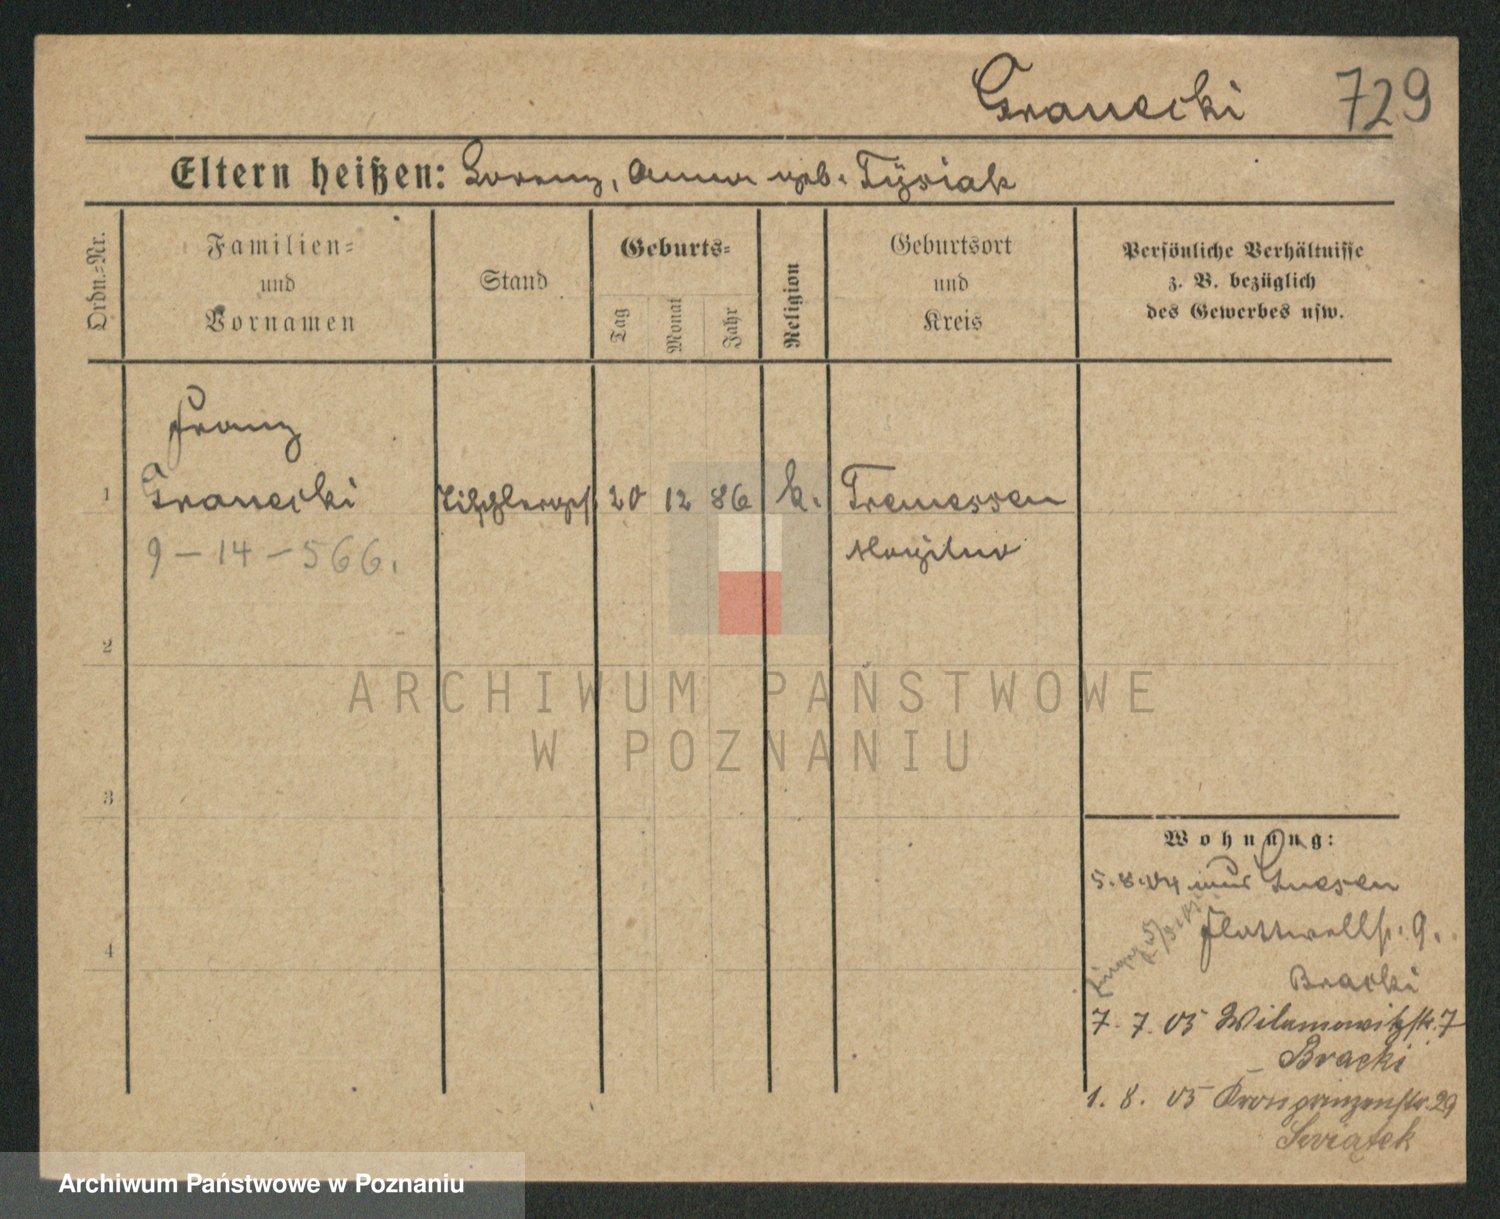 Granecki 729
Eltern heißen: Lorenz, Anna geb. Tysiak
Ordn.=Nr.
Familien=
und
Vornamen
Stand
Geburts=
Tag
Monat
Jahr
Religion
Geburtsort
und
Kreis
Persönliche Verhältnisse
z. B. bezüglich
des Gewerbes usw.
Franz
1 Granecki Tischlergs. 20 12 86 k. Tremessen
9 – 14 – 566. Mogilno
2
ARCHIWUM PAŃSTWOWE
W POZNANIU
3
Wohnung:
5.8.04 Gnesen
4 Flottwellst. 9.
Bracki
7. 7. 05 Wilamowitzstr. 7
Bracki
1. 8. 05 Kronprinzenstr. 29
Swiątek
Archiwum Państwowe w Poznaniu